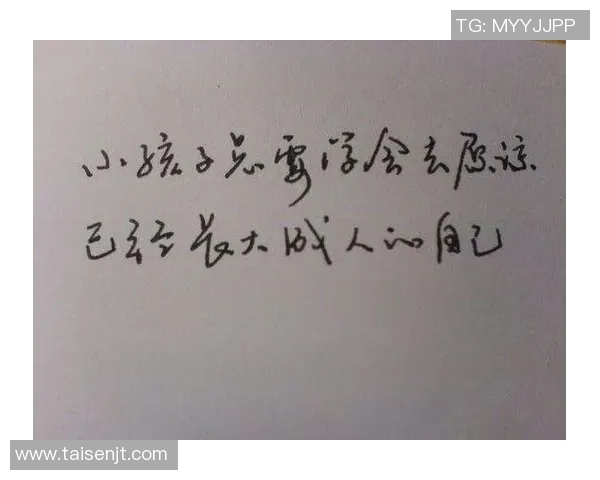 TG: MYYJJPP
小孩子只要学会去原谅
已经长大成人的自己
www.taisenjt.com